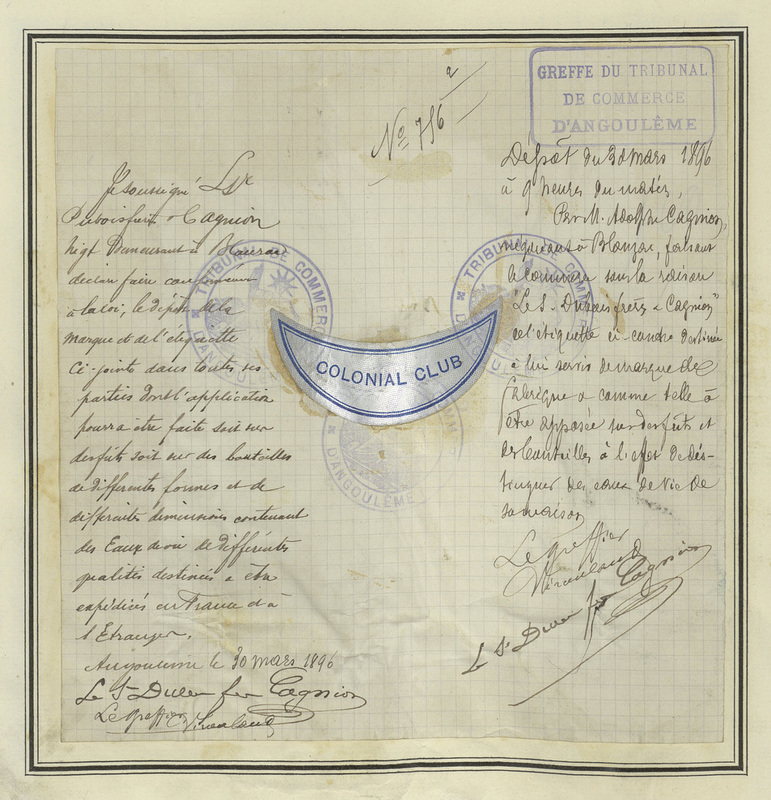 No 756
GREFFE DU TRIBUNAL
DE COMMERCE
D'ANGOULÊME
Je soussigné
& Cagnion
Négt Demeurant à Blanzac
déclare faire conformément
à la loi, le dépôt de la
marque et de l'étiquette
Ci-jointe dans toutes ses
parties dont l'application
pourra être faite soit sur
des fûts soit sur des bouteilles
de différentes formes et de
différentes dimensions contenant
des Eaux de vie de différentes
qualités destinées à être
expédiées en France et à
l'Etranger.
Angoulême le 30 mars 1896
Cagnion
Le Greffier
Dépôt du 30 mars 1896
à 9 heures du matin,
Par M. Adolphe Cagnion,
négociant à Blanzac, faisant
le commerce sous la raison
Cagnion"
de l'étiquette ci-contre destinée
à lui servir de marque de
fabrique & comme telle à
être apposée sur des fûts et
des bouteilles à l'effet de dis-
tinguer des eaux de vie de
sa maison
Le greffier
Cagnion
TRIBUNAL DE COMMERCE
D'ANGOULÊME
TRIBUNAL DE COMMERCE
D'ANGOULÊME
COLONIAL CLUB
D'ANGOULÊME